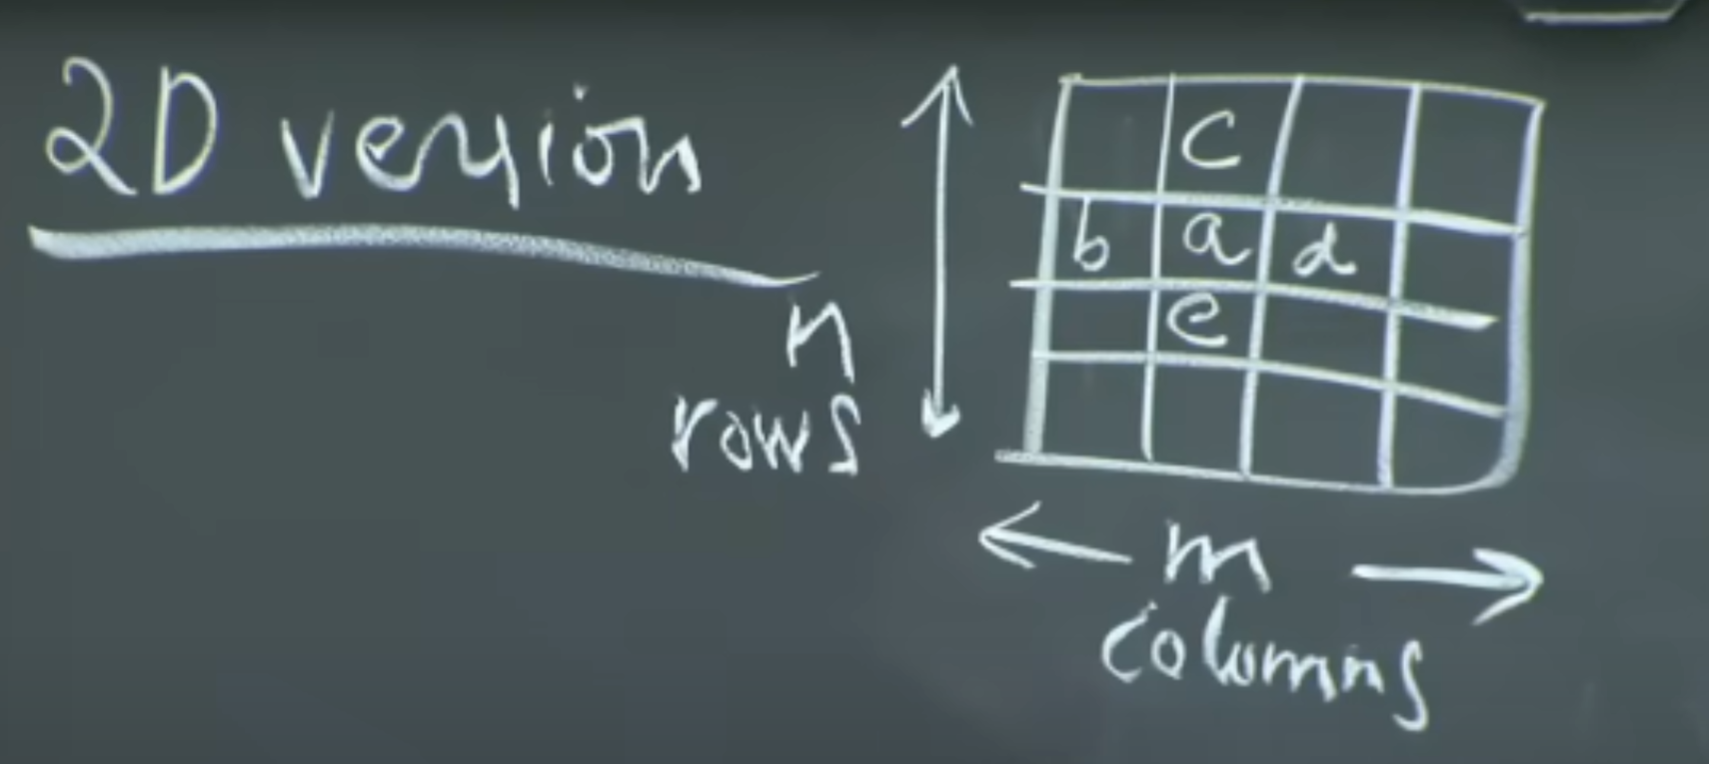 2D version
n
rows
c
b a d
e
m
columns